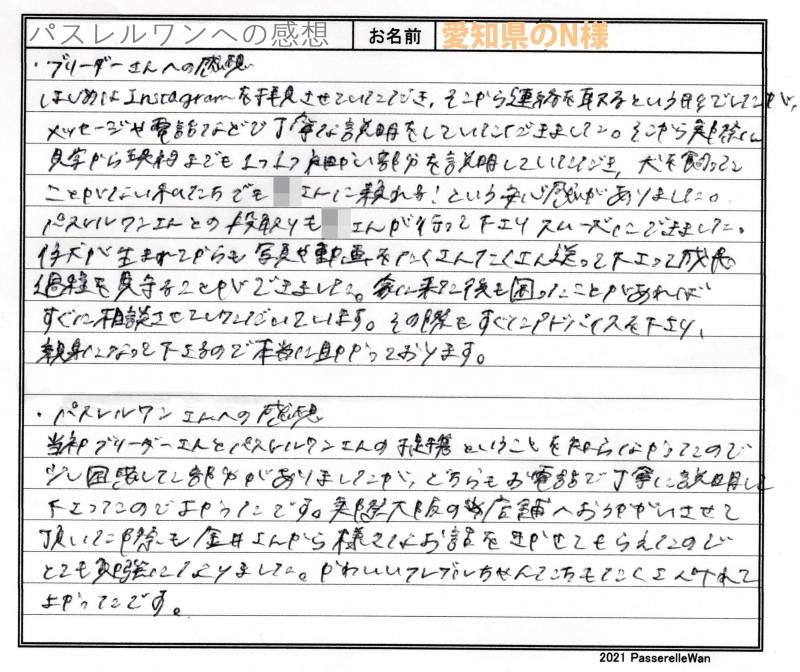 パスレルワンへの感想 お名前 愛知県のN様
・ブリーダーさんへの感想
はじめはInstagramを拝見させていただき、そこから連絡を取るという形でしたが、
メッセージや電話などで丁寧な説明をしていただきました。そこから実際に
見学から契約までも1つ1つ細かい部分を説明していただき、犬を飼った
ことがない私たちでも さんに頼れる！という安心感がありました。
パスレルワンさんとの段取りも さんが行って下さりスムーズにできました。
仔犬が生まれてからも写真や動画をたくさんたくさん送って下さって成長
過程も見守ることができました。家に来た後も困ったことがあれば
すぐに相談させていただいています。その際もすぐにアドバイスを下さり、
親身になって下さるので本当に助かっております。
・パスレルワンさんへの感想
当初ブリーダーさんとパスレルワンさんの提携ということを知らなかったので
少し困惑した部分がありましたが、どちらもお電話で丁寧に説明して
下さったのでよかったです。実際大阪の店舗へおうかがいさせて
頂いた際も金井さんから様々なお話を聞かせてもらえたので
とても勉強になりました。かわいいフレブルちゃんたちもたくさん触れて
よかったです。
2021 PasserelleWan